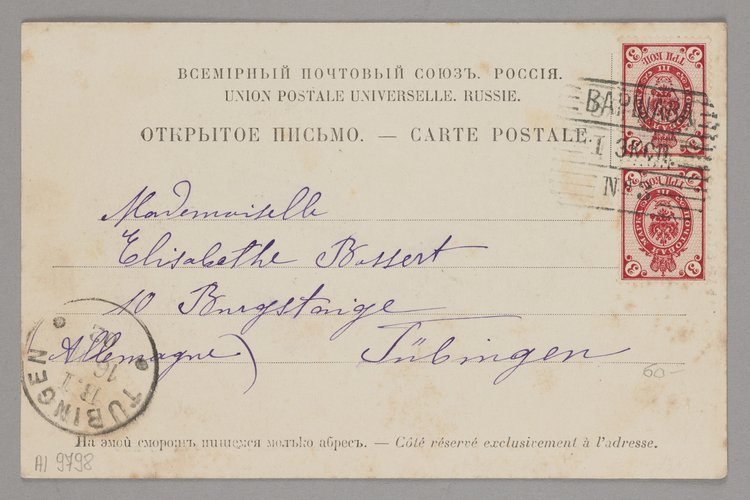 ВСЕМІРНЫЙ ПОЧТОВЫЙ СОЮЗЪ. РОССІЯ.
UNION POSTALE UNIVERSELLE. RUSSIE.
ОТКРЫТОЕ ПИСЬМО. — CARTE POSTALE.
3 ТРИ КОП. 3
ВАРШАВА
1 ЭКСП.
N
3 ТРИ КОП. 3
ПОЧТОВАЯ МАРКА
Mademoiselle
Elisabethe Bossert
10 Burgsteige
(Allemagne) Tübingen
TÜBINGEN
16
60-
На этой сторонѣ пишется только адресъ. — Côté réservé exclusivement à l'adresse.
AI 9798